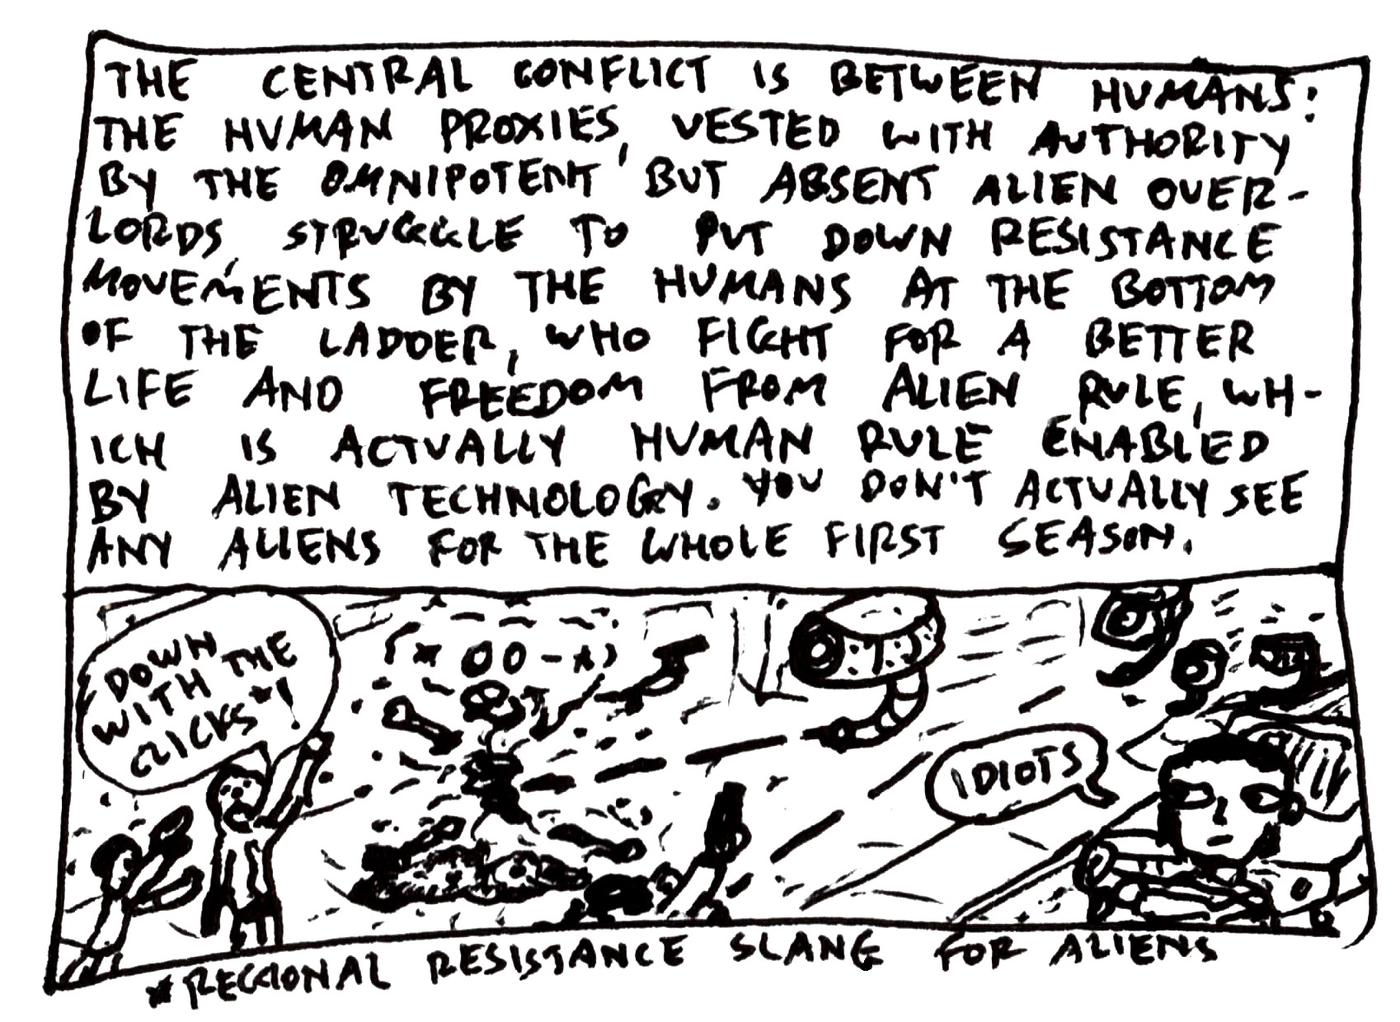 THE CENTRAL CONFLICT IS BETWEEN HUMANS:
THE HUMAN PROXIES, VESTED WITH AUTHORITY
BY THE OMNIPOTENT BUT ABSENT ALIEN OVER-
LORDS, STRUGGLE TO PUT DOWN RESISTANCE
MOVEMENTS BY THE HUMANS AT THE BOTTOM
OF THE LADDER, WHO FIGHT FOR A BETTER
LIFE AND FREEDOM FROM ALIEN RULE, WH-
ICH IS ACTUALLY HUMAN RULE ENABLED
BY ALIEN TECHNOLOGY. YOU DON'T ACTUALLY SEE
ANY ALIENS FOR THE WHOLE FIRST SEASON.
DOWN
WITH THE
CLICKS*!
IDIOTS
*REGIONAL RESISTANCE SLANG FOR ALIENS